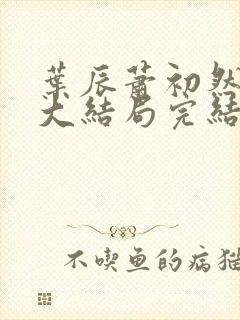 葉辰蕭初然
大結局完結
不喫鱼的病猫